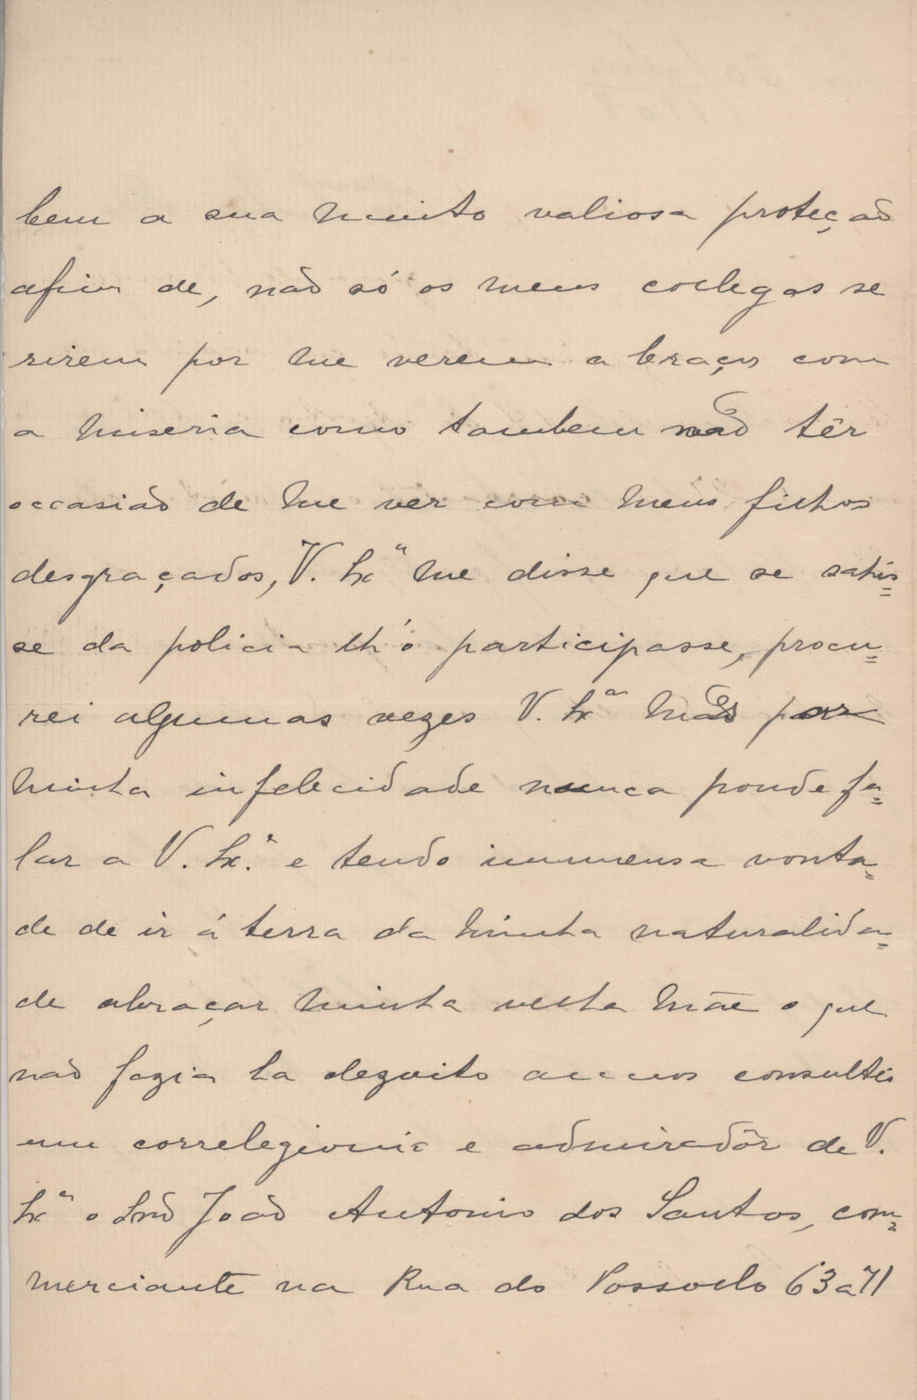 bem a sua muito valiosa proteção
afim de, não só os meus collegas se
rirem por me verem a braços com
a miseria como tambem não têr
occasião de me ver com meus filhos
desgraçados, V. Exª me disse que se sahis=
se da policia lh'o participasse, procu=
rei algumas vezes V. Exª mas por
minha infelecidade nunca poude fa=
lar a V. Exª e tendo immensa vonta=
de de ir á terra da minha naturalida=
de abraçar minha velha Mãe o que
não fazia ha dezoito annos consultei
um correlegionic e admiradôr de V.
Exª o Snr João Antonio dos Santos, com=
merciante na Rua do Possollo 63 a 71